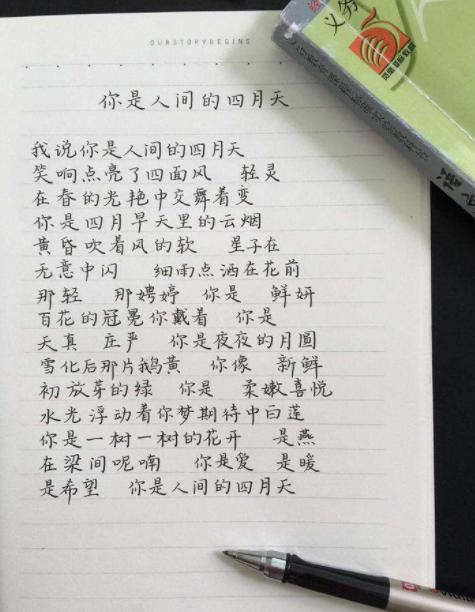 OURSTORYBEGINS
你是人间的四月天
我说你是人间的四月天
笑响点亮了四面风 轻灵
在春的光艳中交舞着变
你是四月早天里的云烟
黄昏吹着风的软 星子在
无意中闪 细雨点洒在花前
那轻 那娉婷 你是 鲜妍
百花的冠冕你戴着 你是
天真 庄严 你是夜夜的月圆
雪化后那片鹅黄 你像 新鲜
初放芽的绿 你是 柔嫩喜悦
水光浮动着你梦期待中白莲
你是一树一树的花开 是燕
在梁间呢喃 你是爱 是暖
是希望 你是人间的四月天
义务
义务教育课程标准实验教科书
语